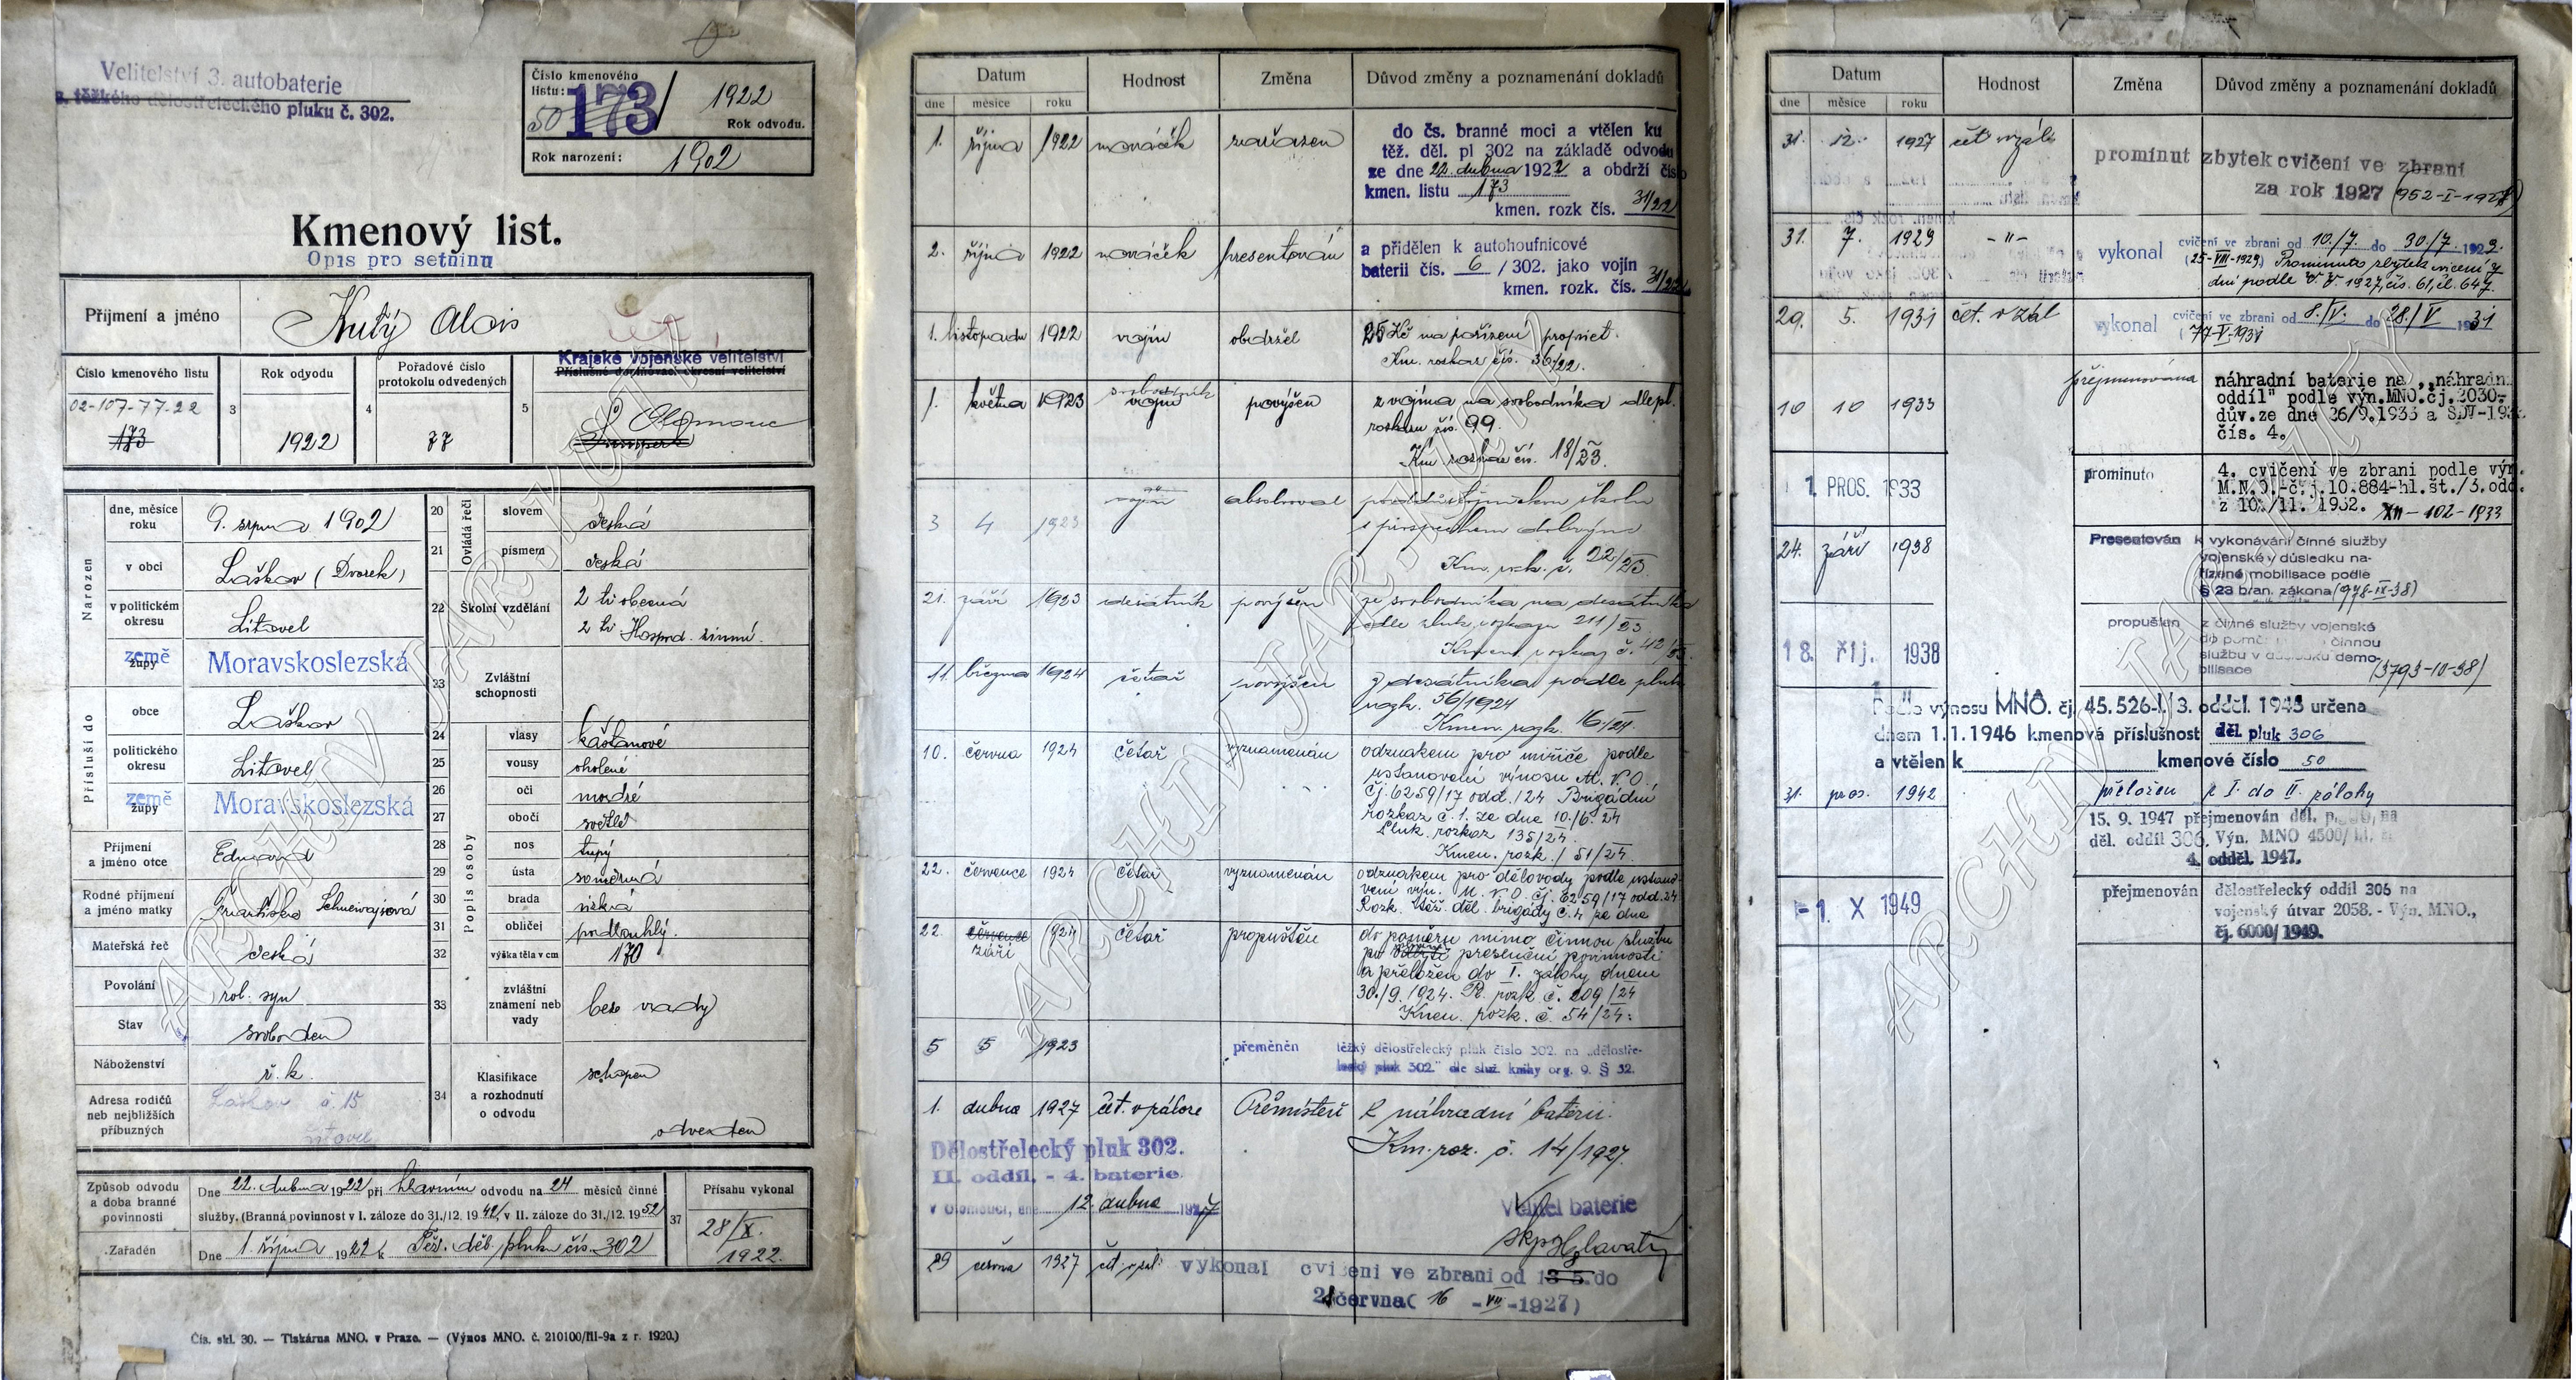 Velitelství 3. autobaterie
s. těžkého dělostřeleckého pluku č. 302.
Číslo kmenového
listu:
50 173/ 1922
Rok odvodu.
Rok narození: 1902
Kmenový list.
Opis pro setninu
Příjmení a jméno
Kutý Alois
čet.
Číslo kmenového listu
02-107-77-22
173
3
Rok odvodu
1922
4
Pořadové číslo
protokolu odvedených
77
5
Krajské vojenské velitelství
Příslušné doplňovací okresní velitelství
Olomouc
Šumperk
Narozen
dne, měsíce
roku
9. srpna 1902
v obci
Laškov (Dvorek)
v politickém
okresu
Litovel
země
župy
Moravskoslezská
Přísluší do
obce
Laškov
politického
okresu
Litovel
země
župy
Moravskoslezská
Příjmení
a jméno otce
Eduard
Rodné příjmení
a jméno matky
Františka
Mateřská řeč
česká
Povolání
rol. syn
Stav
svoboden
Náboženství
ř. k.
Adresa rodičů
neb nejbližších
příbuzných
Laškov č. 15
Litovel
Ovládá řeči
20 slovem česká
21 písmem česká
22 Školní vzdělání
2 tř. obecná
2 tř. Hospod. zimní.
23 Zvláštní
schopnosti
Popis osoby
24 vlasy kaštanové
25 vousy oholené
26 oči modré
27 obočí světlé
28 nos tupý
29 ústa souměrná
30 brada nízká
31 obličej podlouhlý.
32 výška těla v cm 170
33 zvláštní
znamení neb
vady
bez vady
34 Klasifikace
a rozhodnutí
o odvodu
schopen
odveden
Způsob odvodu
a doba branné
povinnosti
Dne 22. dubna 1922 při hlavním odvodu na 24 měsíců činné
služby. (Branná povinnost v I. záloze do 31./12. 1942, v II. záloze do 31./12. 1952)
Zařaděn
Dne 1. října 1922 k Těž. děl. pluku čís. 302
37
Přísahu vykonal
28/X.
1922.
Čís. skl. 30. — Tiskárna MNO. v Praze. — (Výnos MNO. č. 210100/III-9a z r. 1920.)
Datum Hodnost Změna Důvod změny a poznamenání dokladů
dne měsíce roku
1. října 1922 nováček zařazen
do čs. branné moci a vtělen ku
těž. děl. pl 302 na základě odvodu
ze dne 22. dubna 1922 a obdrží číslo
kmen. listu 173
kmen. rozk čís. 31/22
2. října 1922 nováček presentován
a přidělen k autohoufnicové
baterii čís. 6 / 302. jako vojín
kmen. rozk. čís. 31/22
1. listopadu 1922 vojín obdržel 25 Kč na pořízení propriet.
Km. rozkaz čís. 36/22.
1. května 1923 svobodník
vojín povýšen z vojína na svobodníka dle pl.
rozkazu čís. 99.
Km. rozkaz čís. 18/23.
3 4 1923 vojín absolvoval poddůstojnickou školu
s prospěchem dobrým
Km. rozk. č. 22/23.
21. září 1923 desátník povýšen ze svobodníka na desátníka
dle pluk. rozkazu 211/23
Kmen. rozkaz č. 42/23.
11. března 1924 četař povýšen z desátníka podle pluk.
rozk. 56/1924
Kmen. rozk. 16/24.
10. června 1924 četař vyznamenán odznakem pro miřiče podle
ustanovení výnosu M. N. O.
čj. 6259/17 odd. /24 Brigádní
rozkaz č. 1. ze dne 10./6. 24
Pluk. rozkaz 135/24.
Kmen. rozk. / 31/24.
22. července 1924 četař vyznamenán odznakem pro dělovody podle ustano-
vení výn. M. N. O. čj. 6259/17 odd. 24.
Rozk. těž. děl. brigády č. 4 ze dne
22. července 1924 četař propuštěn
září
do poměru mimo činnou službu
po presenční povinnosti
a přeložen do I. zálohy dnem
30./9. 1924. Pl. rozk. č. 209/24
Kmen. rozk. č. 54/24.
5 5 1923 přeměněn těžký dělostřelecký pluk číslo 302. na „dělostře-
lecký pluk 302." dle služ. knihy org. 9. § 32.
1. dubna 1927 čet. v záloze Přemístěn k náhradní baterii.
Km. roz. č. 14/1927.
Dělostřelecký pluk 302.
II. oddíl. - 4. baterie.
v Olomouci, dne 12. dubna 1927
Velitel baterie
skp. Hlavatý
29 června 1927 čet. v zál. vykonal cvičení ve zbrani od 13 5. do
21 června ( 16 -VII-1927)
Datum Hodnost Změna Důvod změny a poznamenání dokladů
dne měsíce roku
31. 12. 1927 čet. v zál.
prominut zbytek cvičení ve zbrani
za rok 1927 (952-I-1928)
31. 7. 1929 -"- vykonal cvičení ve zbrani od 10./7. do 30./7. 1929.
(25-VIII-1929) Prominuto zbytek cvičení 7
dní podle V. V. 1927, čís. 61, čl. 647.
29. 5. 1931 čet. v zál vykonal cvičení ve zbrani od 8./V. do 28./V 1931
(77-V-1931
10 10 1933 přejmenována
náhradní baterie na „náhradní
oddíl" podle výn. MNO. čj. 2030-
dův. ze dne 26/9. 1933 a SDV-193
čís. 4.
1. PROS. 1933 prominuto
4. cvičení ve zbrani podle výn.
M.N.O.-č. j. 10.884-hl. št./3. odd.
z 10./11. 1932. XII-102-1933
24. září 1938 Presentován k vykonávání činné služby
vojenské v důsledku na-
řízené mobilisace podle
§ 23 bran. zákona (978-IX-38)
18. ŘÍJ. 1938 propuštěn z činné služby vojenské
do poměru činnou
službu v důsledku demo-
bilisace (3793-10-38)
Podle výnosu MNO. čj. 45.526-I./3. odděl. 1945 určena
dnem 1.1.1946 kmenová příslušnost děl. pluk 306
a vtělen k kmenové číslo 50
31. pros. 1942 přeložen z I. do II. zálohy
15. 9. 1947 přejmenován děl. p. na
děl. oddíl 306. Výn. MNO 4500/
4. odděl. 1947.
-1. X 1949 přejmenován dělostřelecký oddíl 306 na
vojenský útvar 2058. - Výn. MNO.,
čj. 6000/1949.